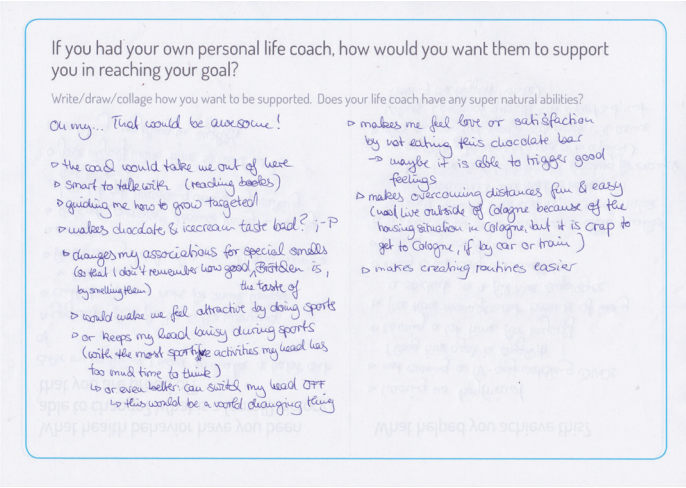 If you had your own personal life coach, how would you want them to support
you in reaching your goal?
Write/draw/collage how you want to be supported. Does your life coach have any super natural abilities?
Oh my... That would be awesome!
▹ the coach would take me out of here
▹ smart to talk with (reading books)
▹ guiding me how to grow targeted
▹ makes chocolate & icecream taste bad? ;-P
▹ changes my associations for special smells
(so that I don't remember how good Brötchen is,
by smelling them) the taste of
▹ would make me feel attractive by doing sports
▹ or keeps my head busy during sports
(with the most sportive activities my head has
too much time to think)
↳ or even better: can switch my head OFF
↳ this would be a world changing thing
▹ makes me feel love or satisfaction
by not eating this chocolate bar
→ maybe it is able to trigger good
feelings
▹ makes overcoming distances fun & easy
(live outside of Cologne because of the
housing situation in Cologne, but it is crap to
get to Cologne, if by car or train)
▹ makes creating routines easier
What health behavior have you been
able to change?
that you are
What helped you achieve this?